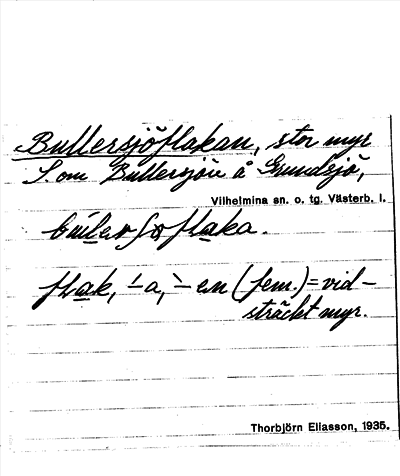 Bullersjöflakan, stor myr
S. om Bullersjön å Grundsjö,
Vilhelmina sn. o. tg. Västerb. l.
flak, -a, -en (fem.) = vid-
sträckt myr.
Thorbjörn Eliasson, 1935.